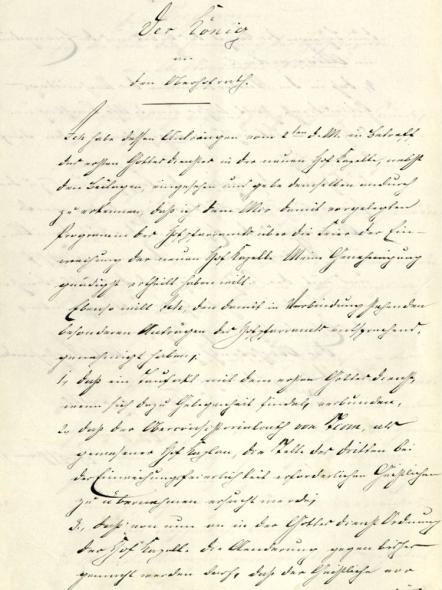 Der König
an
den Oberhofrath.
Ich habe dessen Anbringen vom 2ten d. M. in Betreff
des ersten Gottesdienstes in der neuen Hof Kapelle, nebst
den Beilagen, eingesehen und gebe demselben andurch
zu erkennen, daß ich dem Mir damit vorgelegten
Programm des Hofpfarramts über die Feier der Ein-
weihung der neuen Hof Kapelle Meine Genehmigung
gnädigst ertheilt haben will.
Ebenso will Ich, den damit in Verbindung stehenden
besonderen Anträgen des Hofpfarramts entsprechend,
genehmigt haben,
1, daß ein Taufakt mit dem ersten Gottesdienst,
wenn sich dazu Gelegenheit findet, verbunden,
2, daß der Oberconsistorialrath von als
gewesener Hof Kaplan, die Stelle des dritten bei
der Einweihungsfeierlichkeit erforderlichen Geistlichen
zu übernehmen ersucht werde;
3, daß von nun an in der Gottesdienst Ordnung
der Hof Kapelle die Aenderung gegen bisher
gemacht werden darf, daß der Geistliche vor